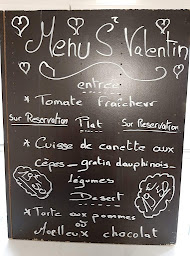 Menu St Valentin
entrée
* Tomate fraîcheur
Sur Reservation Plat Sur Reservation
* Cuisse de canette aux
cèpes - gratin dauphinois -
légumes
Dessert
* Tarte aux pommes
où
Moelleux chocolat